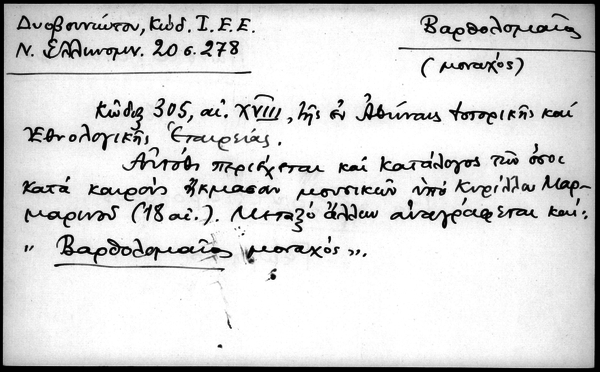 Δυοβουνιώτου, Κώδ. Ι. Ε. Ε.
Ν. Ελληνομν. 20 σ. 278
Βαρθολομαῖος
(μοναχός)
Κῶδιξ 305, αἰ. XVIII, τῆς ἐν Ἀθήναις Ἱστορικῆς καὶ
Ἐθνολογικῆς Ἑταιρείας.
Αὐτόθι περιέχεται καὶ κατάλογος τῶν ὅσοι
κατὰ καιροὺς ἤκμασαν μουσικῶν ὑπὸ Κυρίλλου Μαρ-
μαρινοῦ (18 αἰ.). Μεταξὺ ἄλλων ἀναγράφεται καί:
„ Βαρθολομαῖος μοναχός „.